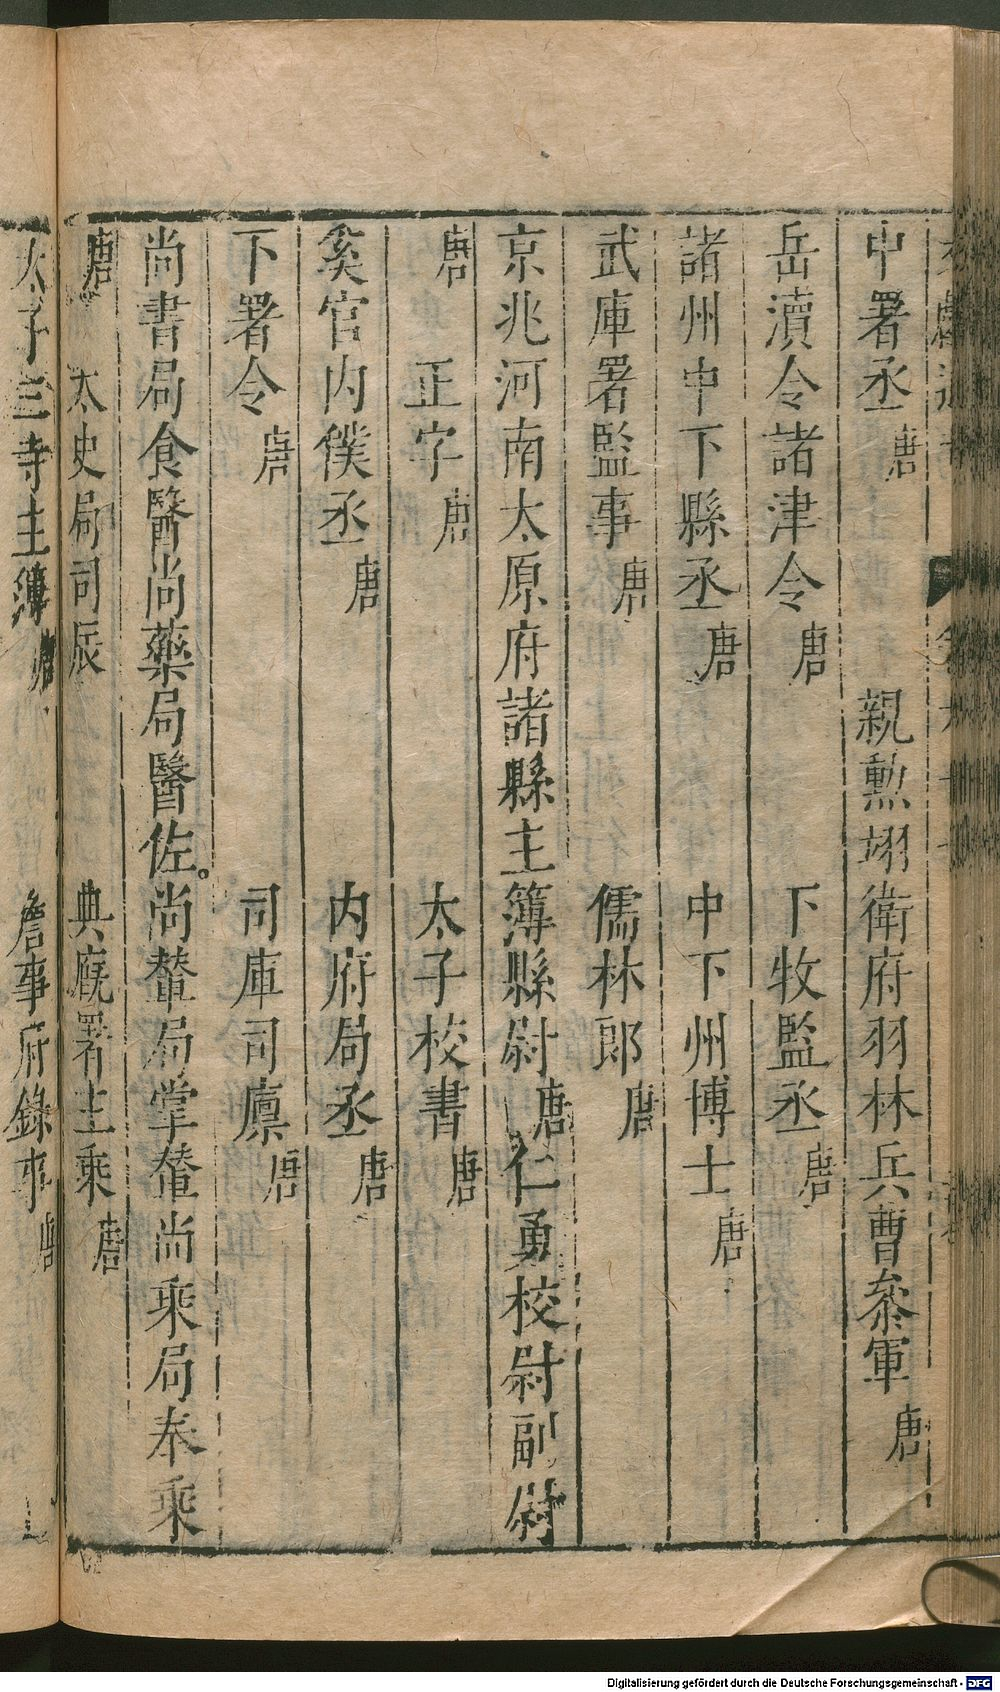 中署丞唐 親勲翊衛府羽林兵曹叅軍唐
岳瀆令諸津令唐 下牧監丞唐
諸州中下縣丞唐 中下州博士唐
武庫署監事唐 儒林郎唐
京兆河南太原府諸縣主簿縣尉唐 仁勇校尉副尉
唐 正字唐 太子校書唐
奚官内僕丞唐 内府局丞唐
下署令唐 司庫司廪唐
尚書局食醫尚藥局醫佐。尚輦局掌輦尚乘局奉乘
唐 太史局司辰 典廐署主乘唐
太子三寺主簿唐 詹事府錄事唐
Digitalisierung gefördert durch die Deutsche Forschungsgemeinschaft - DFG